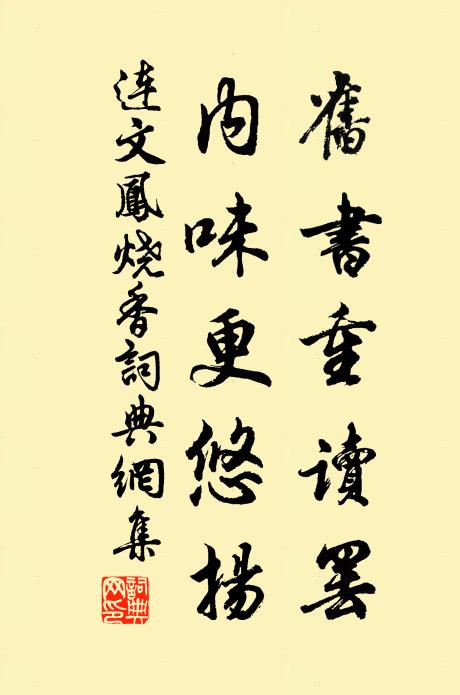 舊書重讀罷
内味更悠揚
連文鳳燒香詞典網集
詞典網印